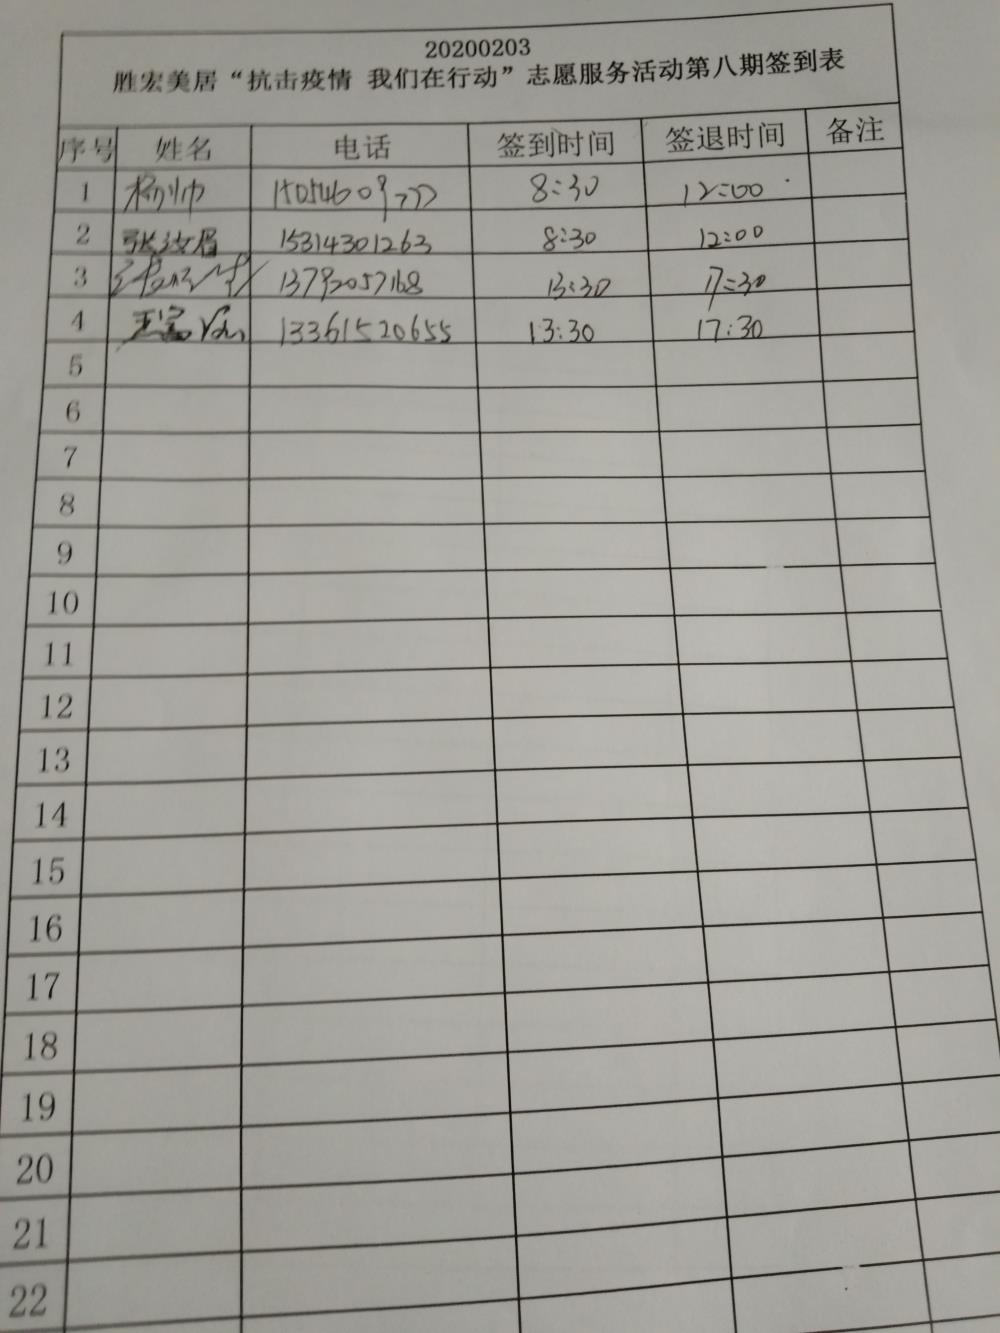 20200203
胜宏美居“抗击疫情 我们在行动”志愿服务活动第八期签到表
序号 姓名 电话 签到时间 签退时间 备注
1 杨帅 8:30 12:00
2 张汝眉 15314301263 8:30 12:00
3 13793057168 13:30 17:30
4 13361520655 13:30 17:30
5
6
7
8
9
10
11
12
13
14
15
16
17
18
19
20
21
22